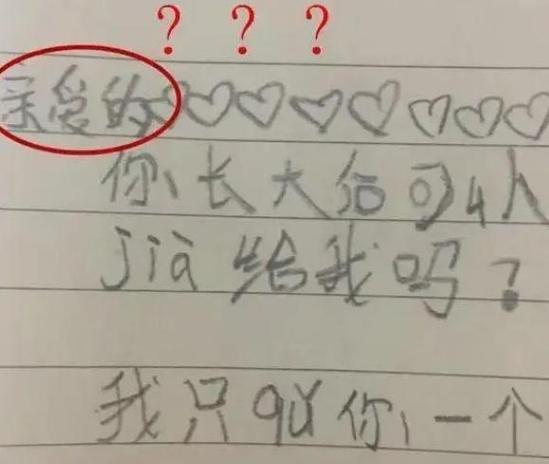 ？ ？ ？
亲爱的♡♡♡♡♡♡♡♡
你长大后可以
jià 给我吗？
我只qǔ你一个